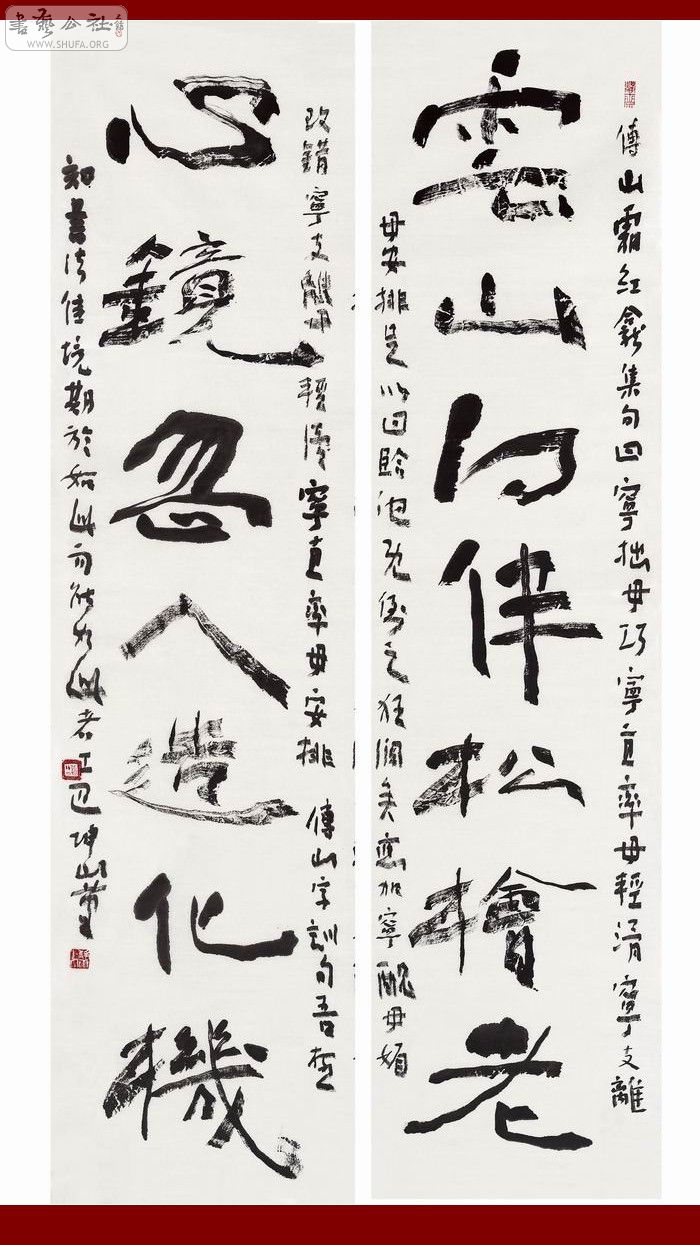 書藝公社
WWW.SHUFA.ORG
傅山霜紅龕集句曰寧拙毋巧寧直率毋輕滑寧支離
雲山何伴松檜老
毋安排是以回臨池既倒之狂瀾矣 加寧醜毋媚
改錯寧支離毋輕滑寧直率毋安排 傅山字訓句吾
心鏡忽入造化機
書法佳境期於如此 能如此者